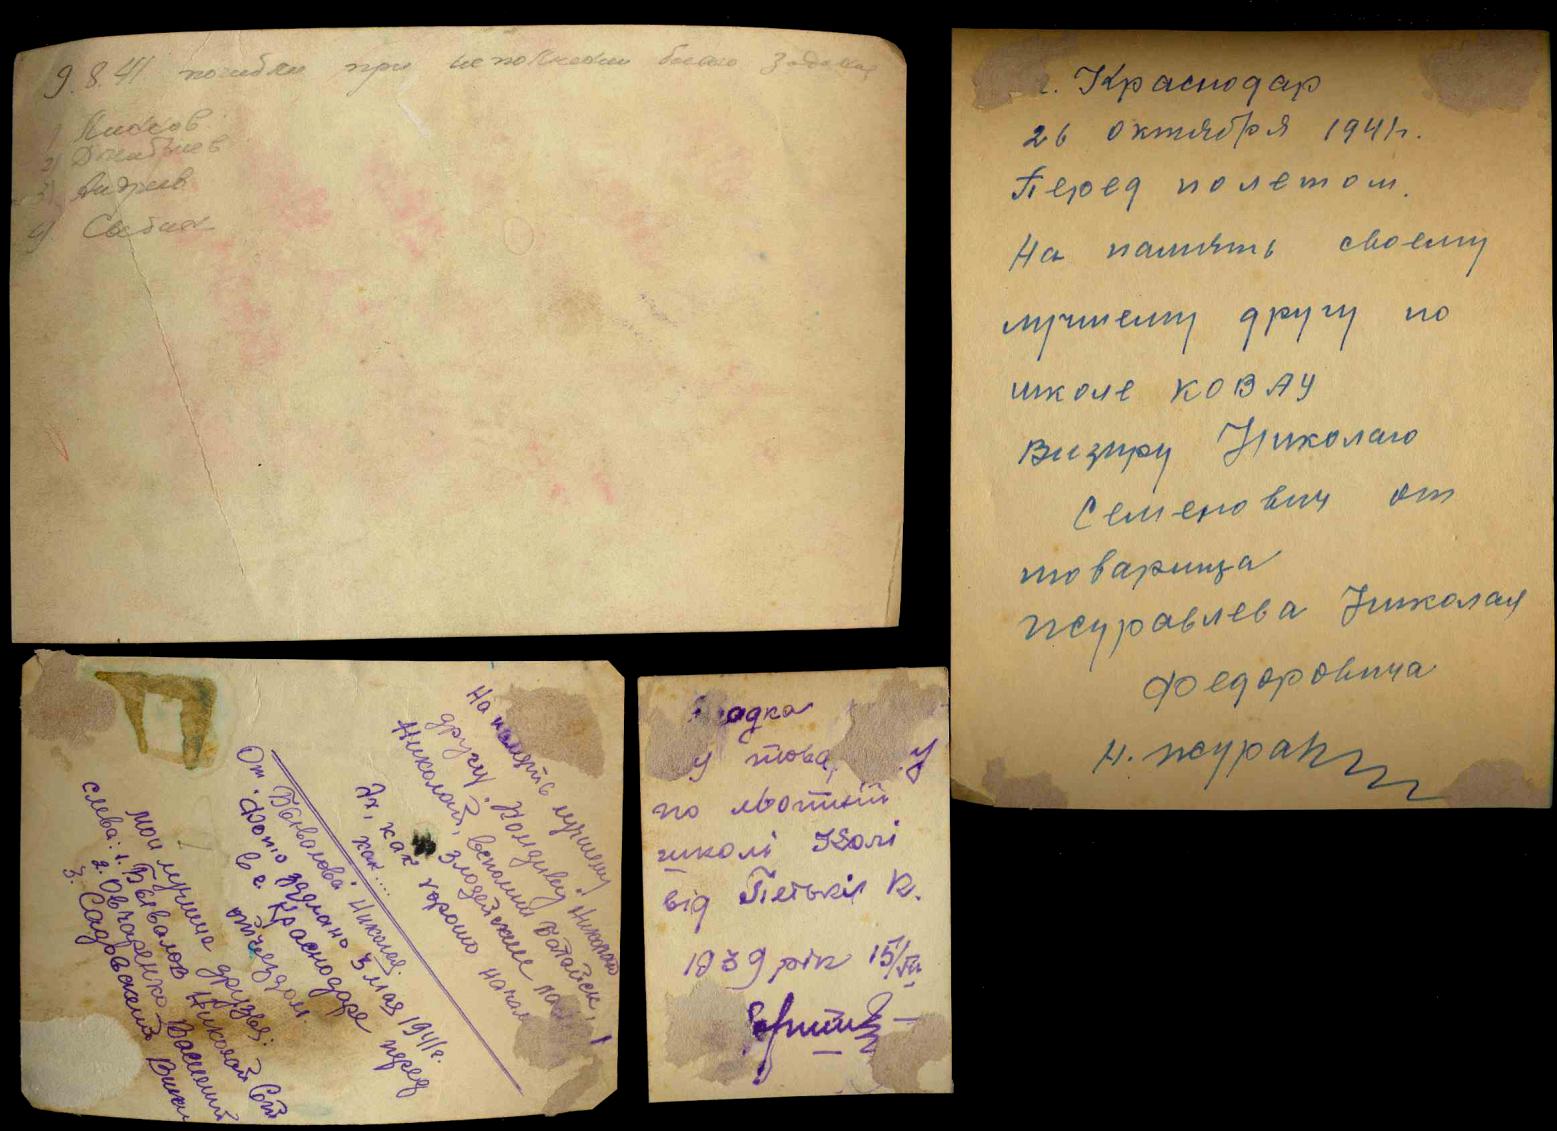 9.8.41 погибли при исполнении боевого задания
1)
2)
3) Андреев
4) Сабин
г. Краснодар
26 октября 1941г.
Перед полетом.
На память своему
лучшему другу по
школе КОВАУ
Визиру Николаю
Семенович от
товарища
Журавлева Николая
Федоровича
Н. Журав
На память лучшему
другу. Кондиву Николаю
Николай, вспомни Батайск,
злодейские
Эх, как хорошо начал
как....
От Бывалова Николая.
Фото сделано 3 мая 1941г.
в г. Краснодаре перед
отъездом.
Мои лучшие друзья:
слева: 1. Бывалов Николай
2. Овчаренко Василий
3. Садовский
адка
у това у
по льотній
школі Колі
від Петькі К.
1939 рік 15/VII